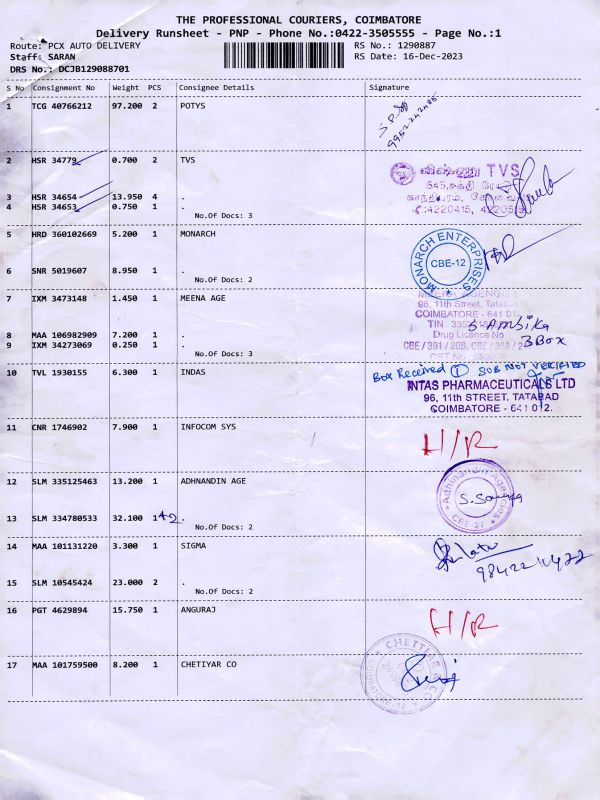 THE PROFESSIONAL COURIERS, COIMBATORE
Delivery Runsheet - PNP - Phone No.:0422-3505555 - Page No.:1
Route: PCX AUTO DELIVERY RS No.: 1290887
Staff: SARAN RS Date: 16-Dec-2023
DRS No.: DCJB129088701
S No Consignment No Weight PCS Consignee Details Signature
1 TCG 40766212 97.200 2 POTYS
S.P.
9952242485
2 HSR 34779 0.700 2 TVS
TVS
3 HSR 34654 13.950 4 .
4 HSR 34653 0.750 1 .
No.Of Docs: 3
4220415,
5 HRD 360102669 5.200 1 MONARCH
MONARCH ENTERPRISES
CBE-12
6 SNR 5019607 8.950 1 .
No.Of Docs: 2
7 IXM 3473148 1.450 1 MEENA AGE
96, 11th Street, Tatabad
COIMBATORE - 641 01
TIN
8 MAA 106982909 7.200 1 .
Drug Licence No
9 IXM 34273069 0.250 1 .
CBE / 391 / 20B, CBE
3 Box
No.Of Docs: 3
10 TVL 1930155 6.300 1 INDAS
Box Received 1 SUB NOT VERIFIED
INTAS PHARMACEUTICALS LTD
96, 11th STREET, TATABAD
COIMBATORE - 641 012.
11 CNR 1746902 7.900 1 INFOCOM SYS
H/R
12 SLM 335125463 13.200 1 ADHNANDIN AGE
CBE-27
13 SLM 334780533 32.100 1 42.
No.Of Docs: 2
14 MAA 101131220 3.300 1 SIGMA
15 SLM 10545424 23.000 2 .
No.Of Docs: 2
16 PGT 4629894 15.750 1 ANGURAJ
H/R
17 MAA 101759500 8.200 1 CHETIYAR CO